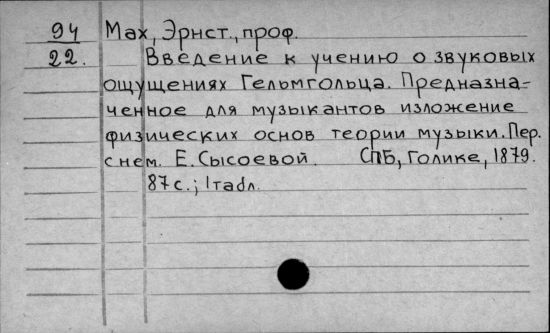 94 Мах, Эрнст., проф.
22. Введение к учению о звуковых
ощущениях Гельмгольца. Предназна-
ченное для музыкантов изложение
физических основ теории музыки. Пер.
с нем. Е. Сысоевой. СПБ, Голике, 1879.
87 с.; 1 табл.